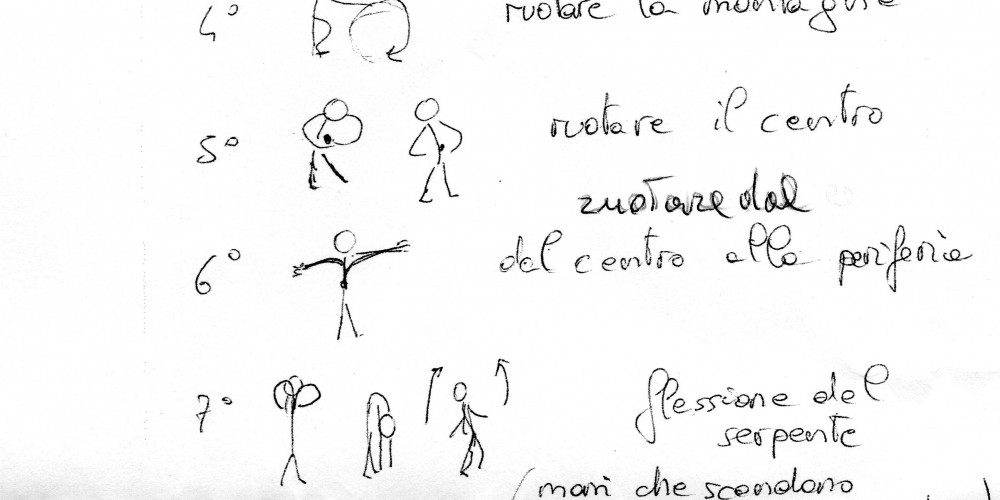 4° ruotare la montagna
5° ruotare il centro
ruotare dal
6° dal centro alla periferia
7° flessione del
serpente
(mani che scendono